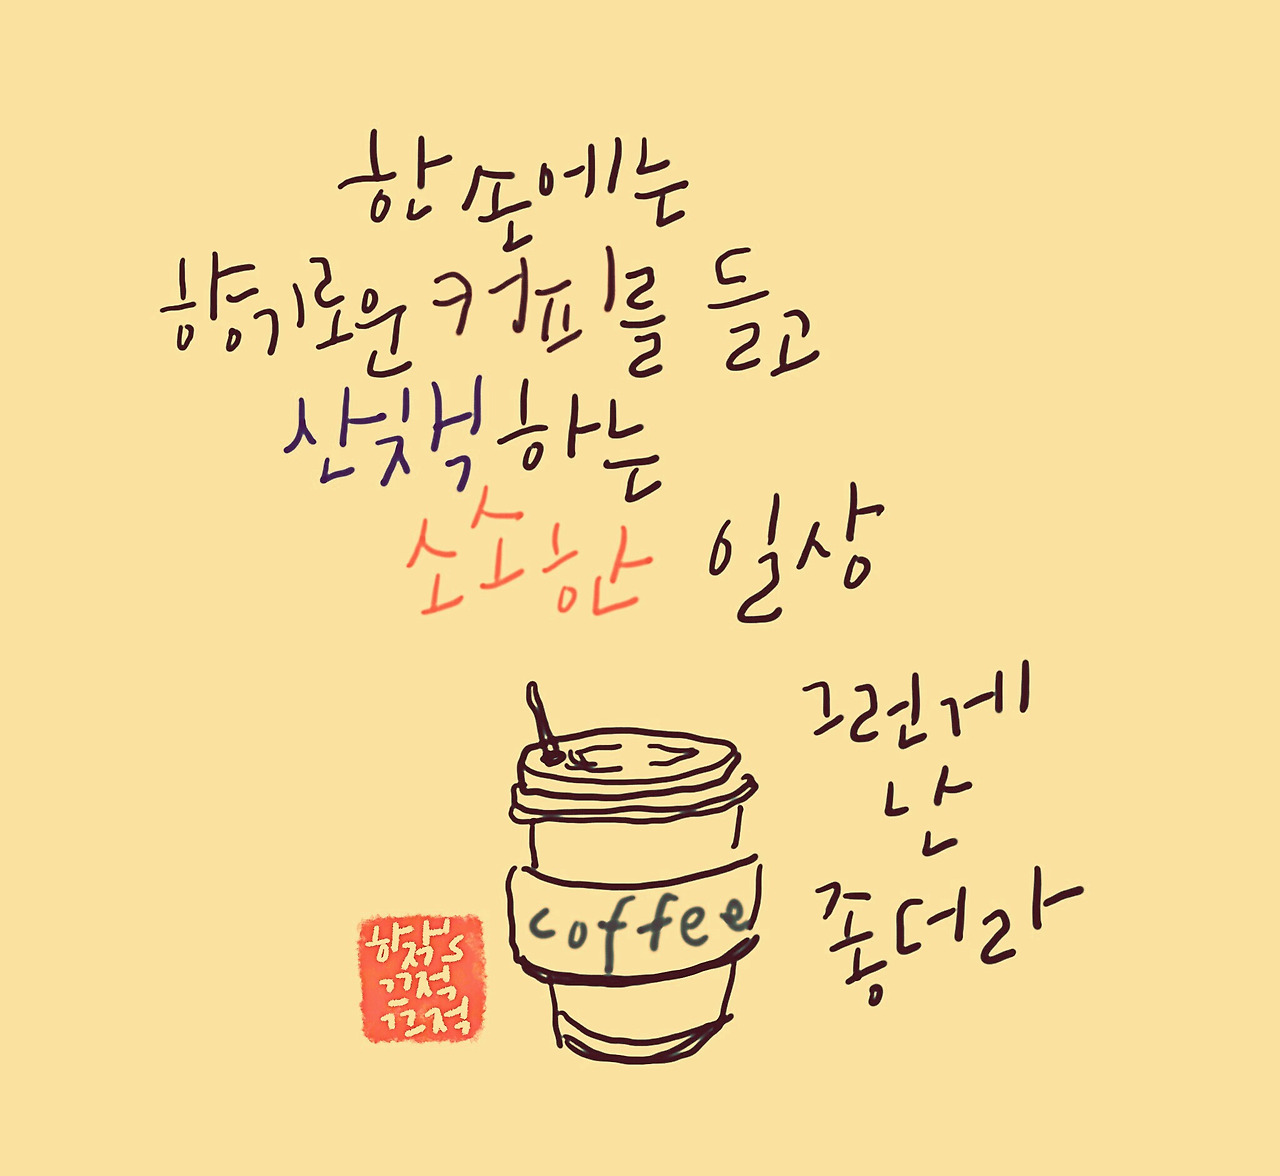 한 손에는
향기로운 커피를 들고
산책하는
소소한 일상
그런게
난
좋더라
coffee
하작s
끄적
끄적